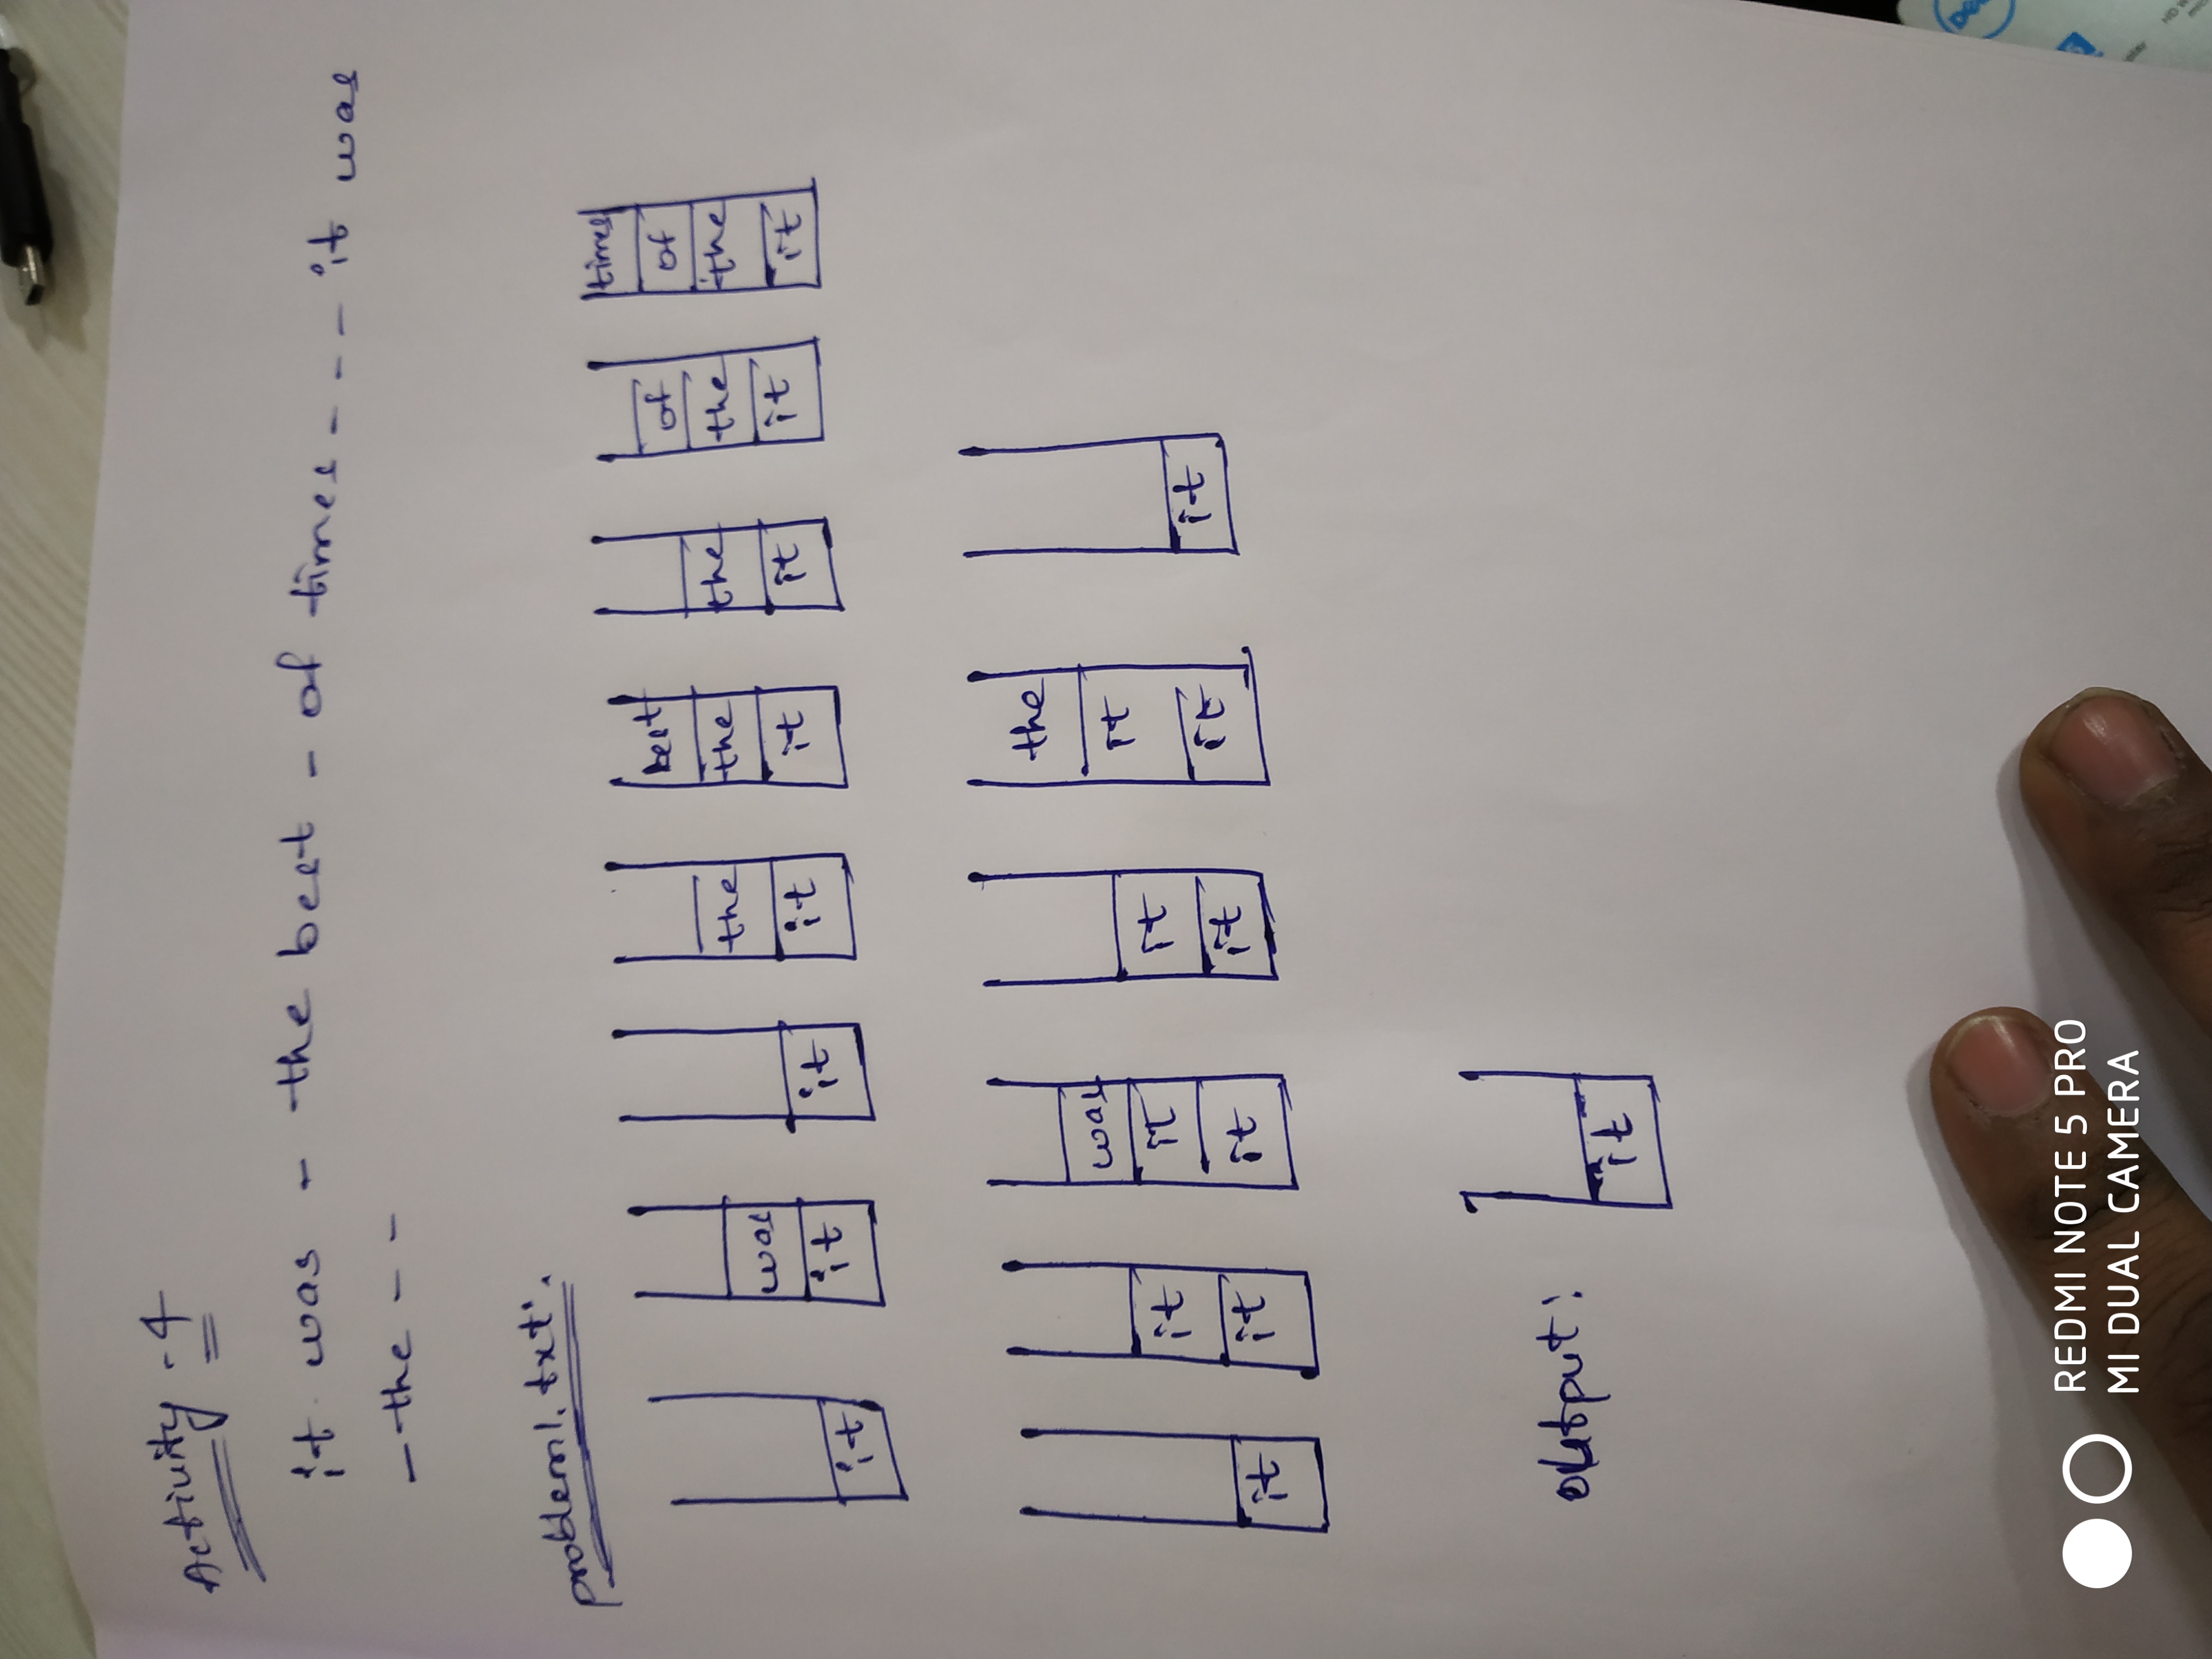 Activity - 4
it was - the best - of times - - - it was
- the - -
problem1.txt.
it
was
it
it
the
it
best
the
it
the
it
of
the
it
times
of
the
it
it
it
it
was
it
it
it
it
the
it
it
it
output:
it
REDMI NOTE 5 PRO
MI DUAL CAMERA